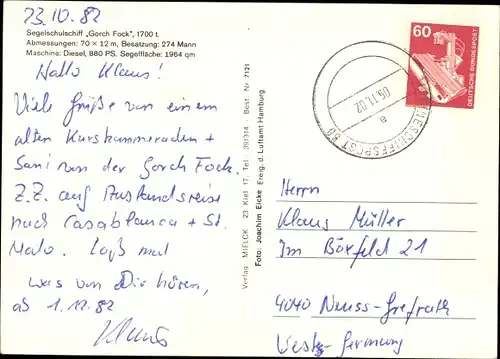 23.10.82
Segelschulschiff „Gorch Fock", 1700 t.
Abmessungen: 70 × 12 m, Besatzung: 274 Mann
Maschine: Diesel, 880 PS. Segelfläche: 1964 qm
Hallo Klaus!
Viele Grüße von einem
alten Kurskammeraden +
Sani von der Gorch Fock.
Z.Z. auf Auslandsreise
nach Casablanca + St.
Malo. Laß mal
was von Dir hören,
ab 1.12.82
Klaus
Verlag: MIELCK 23 Kiel 17, Tel. 391314 Best. Nr. 7121
Foto: Joachim Eicke Freig. d. Luftamt Hamburg
60
DEUTSCHE BUNDESPOST
05.11.82
a
MARINESCHIFFSPOST
Herrn
Klaus Müller
Im Börfeld 21
4040 Neuss-Grefrath
West-Germany